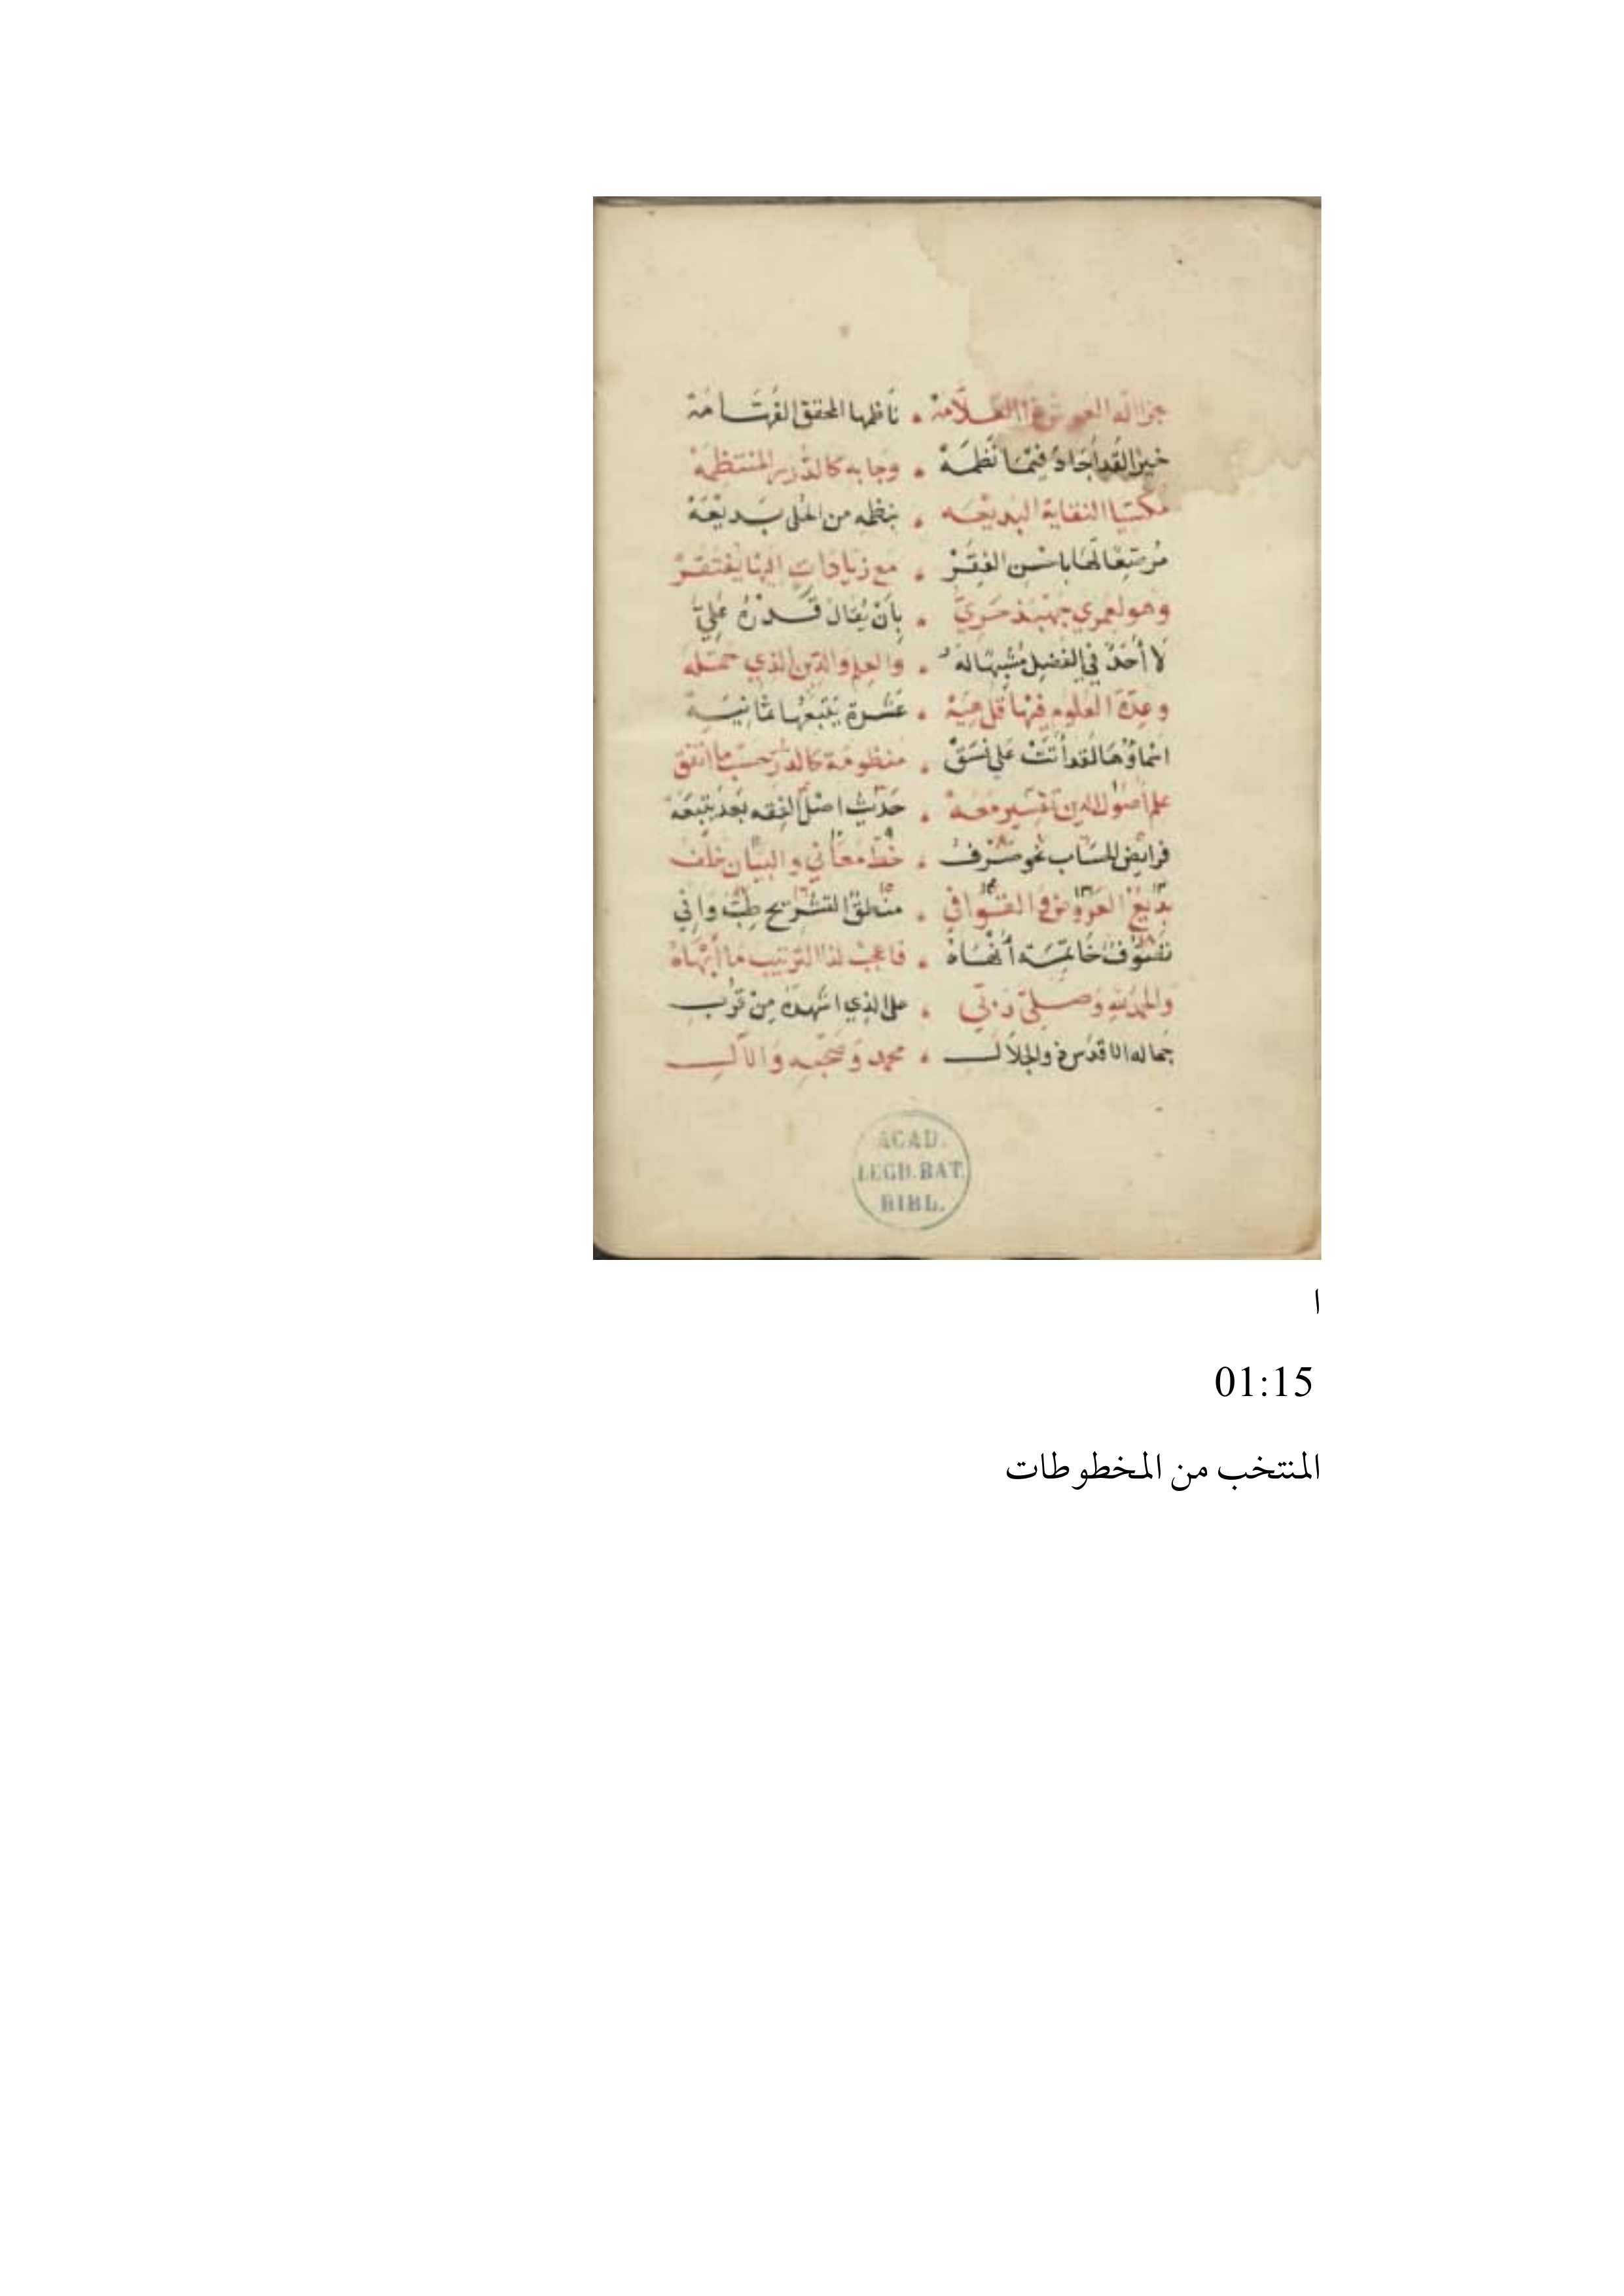 جزا اله العرش عنا العلامة • ناظمها المحقق الفهامة
خيرا لقد أجاد فيما نظمه • وجا به كالدرر المنتظمه
مكتسيا النقاية البديعه • بنظمه من الحلى بديعة
مرصعا لها باحسن الفقر • مع زيادات اليها يفتقر
وهو لعمري جهبذ حري • بأن يقال قدره علي
لا أحد في الفضل مشبها له • والعلم والدين الذي حمله
وعدة العلوم فيها قل هيه • عشرة يتبعها ثمانيه
اسماؤها لقد أتت على نسق • منظومة كالدر حسب ما اتفق
علم أصول الدين تفسير معه • حديث اصل الفقه بعد يتبعه
فرايض الحساب نحو صرف • خط معاني والبيان خلف
بديع العروض والقوافي • منطق التشريح طب وافي
تصوف خاتمة أنهاه • فاعجب لذا الترتيب ما أبهاه
والحمد لله وصلى ربي • على الذي اشهده من قرب
جماله الاقدس والجلال • محمد وصحبه والآل
ACAD.
LUGD. BAT.
BIBL.
ا
01:15
المنتخب من المخطوطات